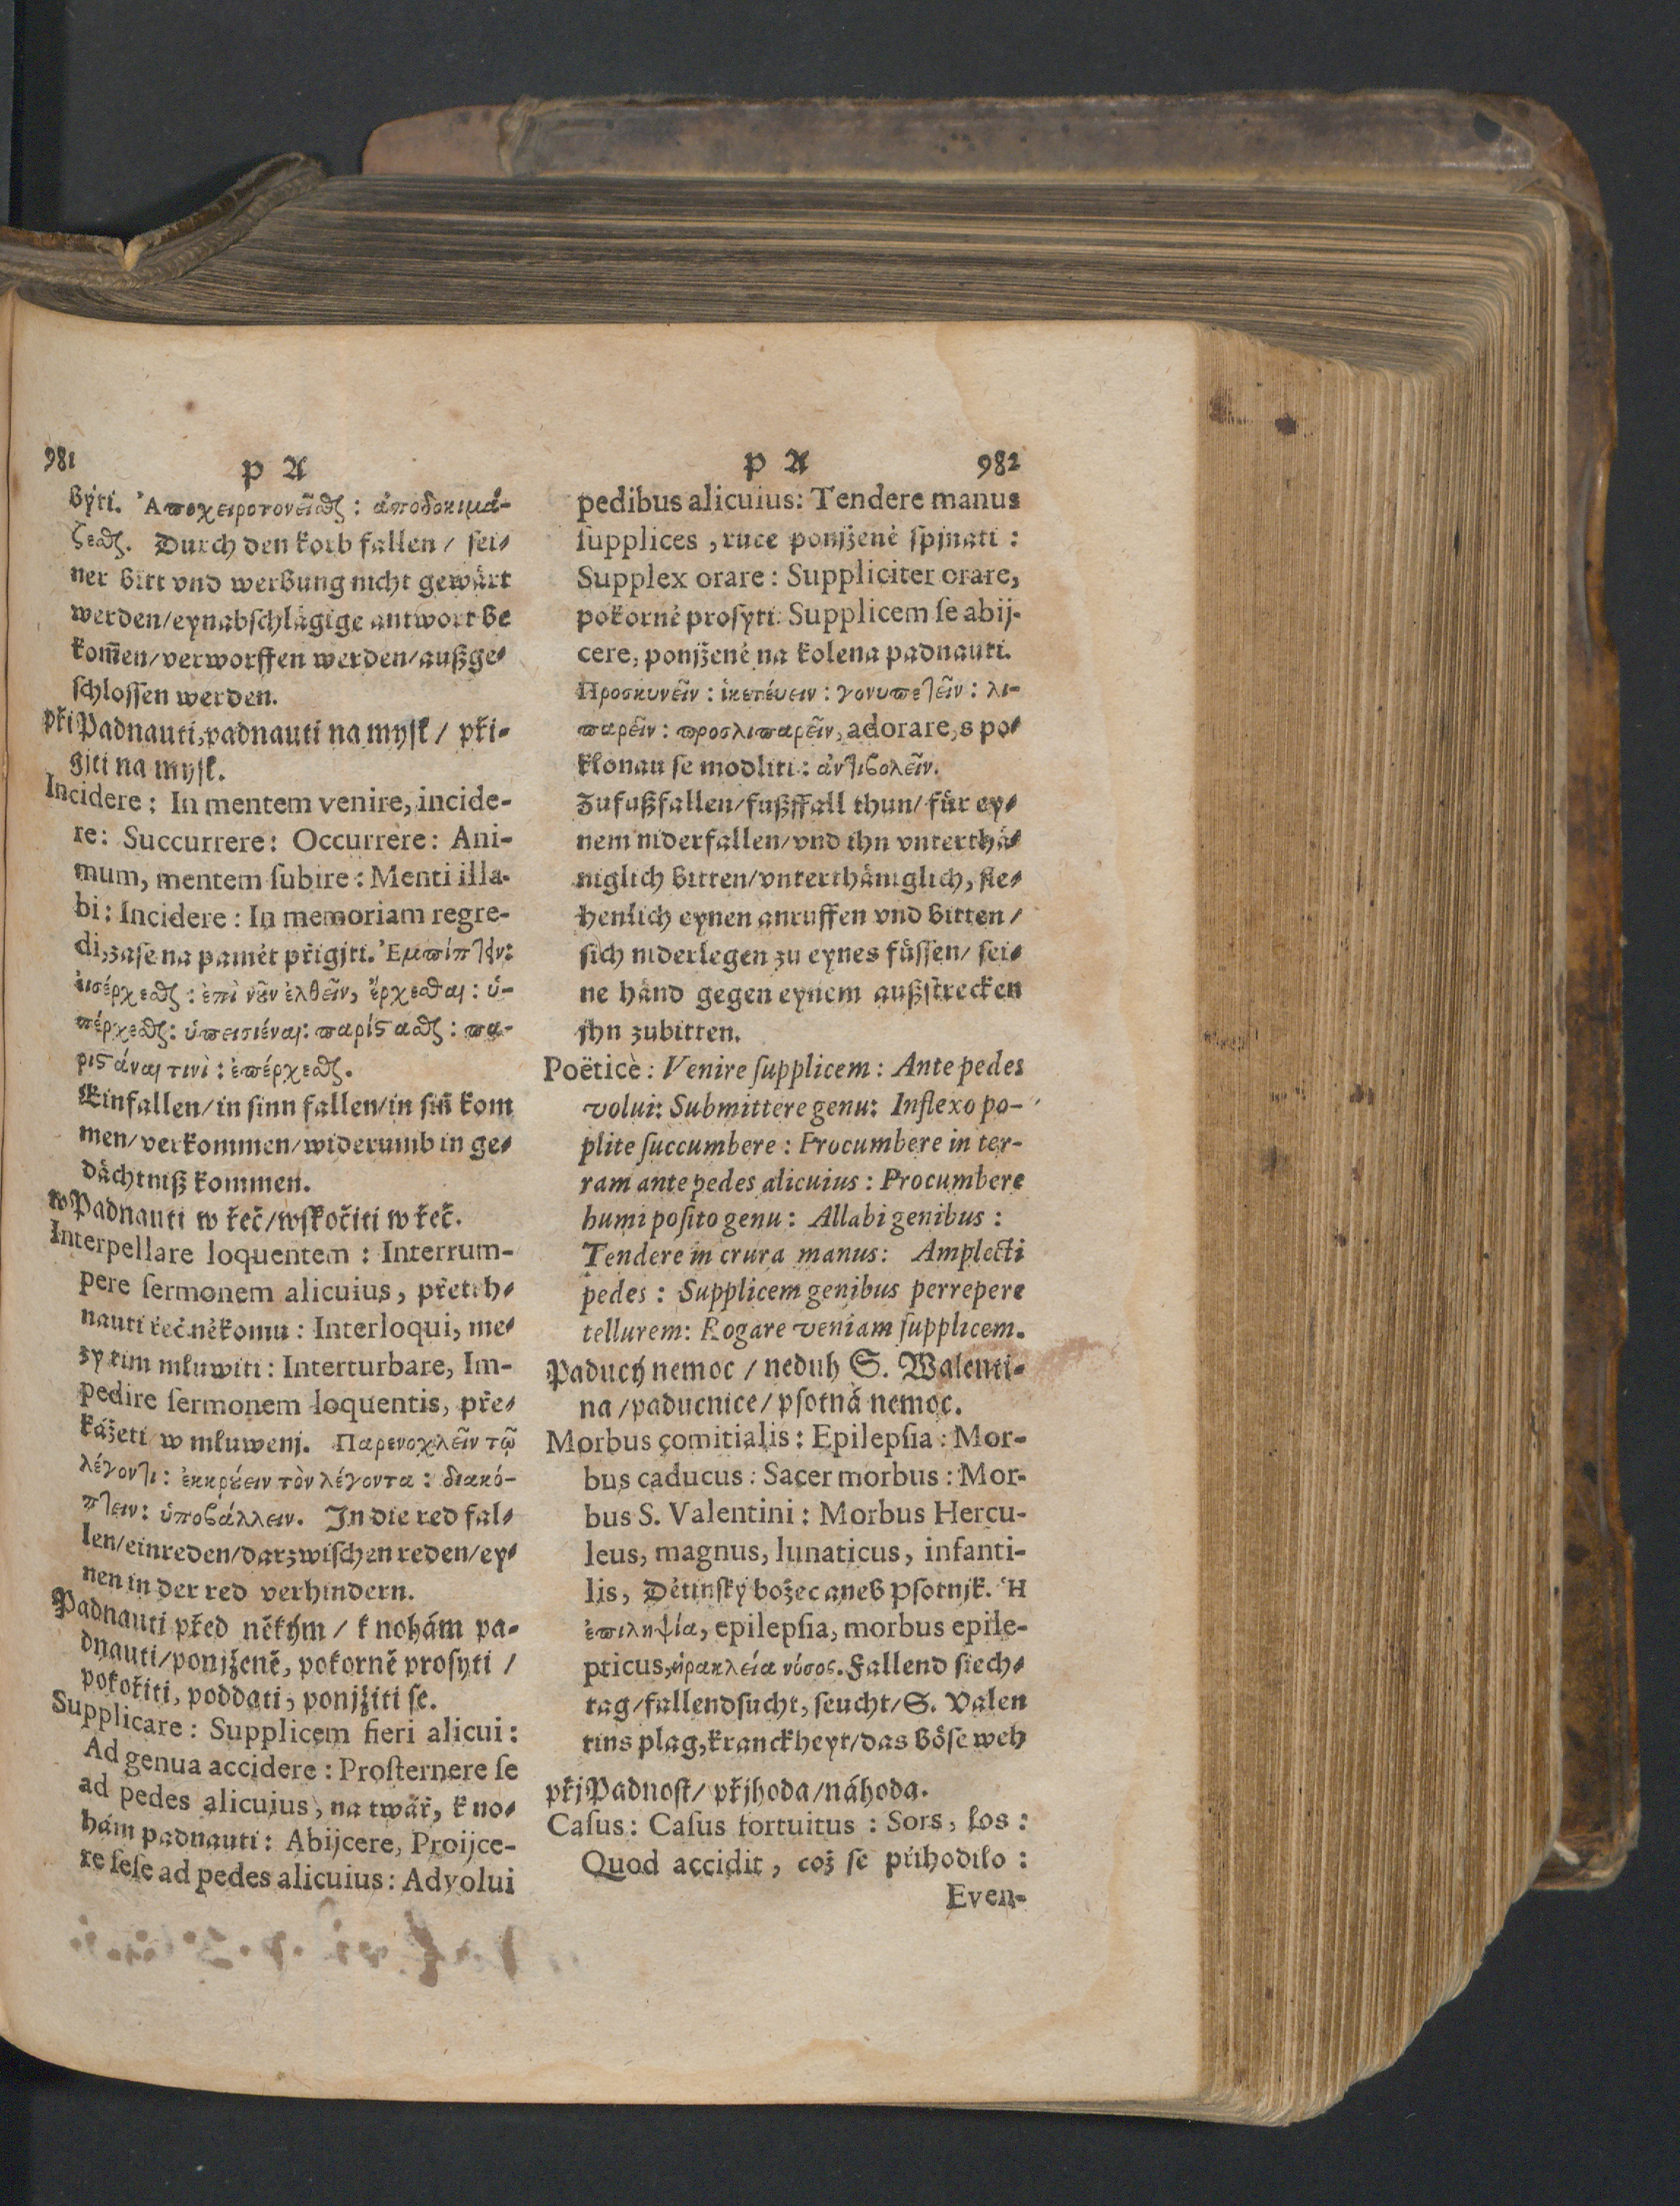 981
P A
býti. Ἀποχειροτονεῖσθαι: ἀποδοκιμά-
ζεσθαι. Durch den korb fallen / sei-
ner bitt vnd werbung nicht gewärt
werden/eyn abschlägige antwort be
kom̃en/verworffen werden/außge-
schlossen werden.
při Padnauti, padnauti na mysl / při-
gjti na mysl.
Incidere: In mentem venire, incide-
re: Succurrere: Occurrere: Ani-
mum, mentem ſubire: Menti illa-
bi: Incidere: In memoriam regre-
di, zase na pamět přigjti. Ἐμπίπτειν:
εἰσέρχεσθαι: ἐπὶ νοῦν ἐλθεῖν, ἔρχεσθαι: ὑ-
πέρχεσθαι: ὑπεισιέναι: παρίςασθαι: πα-
ριςάναι τινὶ: ἐπέρχεσθαι.
Einfallen/in sinn fallen/in siñ kom
men/verkommen/widerumb in ge-
dächtniß kommen.
w Padnauti w řeč/wskočiti w řeč.
Interpellare loquentem: Interrum-
pere ſermonem alicuius, přetrh-
nauti řeč někomu: Interloqui, me-
zy tim mluwiti: Interturbare, Im-
pedire ſermonem loquentis, pře-
kážeti w mluwenj. Παρενοχλεῖν τῷ
λέγοντι: ἐκκρούειν τὸν λέγοντα: διακό-
πτειν: ὑποβάλλειν. In die red fal-
len/einreden/darzwischen reden/ey-
nen in der red verhindern.
Padnauti před někým / k nohám pa-
dnauti/ponjženě, pokorně prosyti /
pokořiti, poddati, ponjžiti se.
Supplicare: Supplicem fieri alicui:
Ad genua accidere: Proſternere ſe
ad pedes alicuius, na twář, k no-
hám padnauti: Abijcere, Proijce-
re ſeſe ad pedes alicuius: Advolui
P A
982
pedibus alicuius: Tendere manus
ſupplices, ruce ponjženě spjnati:
Supplex orare: Suppliciter orare,
pokorně prosyti: Supplicem ſe abij-
cere, ponjženě na kolena padnauti.
Προσκυνεῖν: ἱκετέυειν: γονυπετεῖν: λι-
παρεῖν: προσλιπαρεῖν, adorare, s po-
klonau se modliti: ἀντιβολεῖν.
Zufußfallen/fußffall thun/für ey-
nem niderfallen/vnd ihn vnterthä-
niglich bitten/vnterthäniglich, fle-
henlich eynen anruffen vnd bitten /
sich niderlegen zu eynes füssen/ sei-
ne händ gegen eynem außstrecken
jhn zubitten.
Poëticè: Venire ſupplicem: Ante pedes
volui: Submittere genu: Inflexo po-
plite ſuccumbere: Procumbere in ter-
ram ante pedes alicuius: Procumbere
humi poſito genu: Allabi genibus:
Tendere in crura manus: Amplecti
pedes: Supplicem genibus perrepere
tellurem: Rogare veniam ſupplicem.
Paducý nemoc / neduh S. Walenti-
na / paducnice / psotná nemoc.
Morbus comitialis: Epilepſia: Mor-
bus caducus: Sacer morbus: Mor-
bus S. Valentini: Morbus Hercu-
leus, magnus, lunaticus, infanti-
lis, Dětinský božec aneb psotnjk. Ἡ
ἐπιληψία, epilepſia, morbus epile-
pticus, ἡρακλεία νόσος. Fallend siech-
tag/fallendsucht, seucht/S. Valen
tins plag, kranckheyt/das böse weh
přj Padnost/ přjhoda/náhoda.
Caſus: Caſus fortuitus: Sors, los:
Quod accidit, což se přihodilo:
Even-